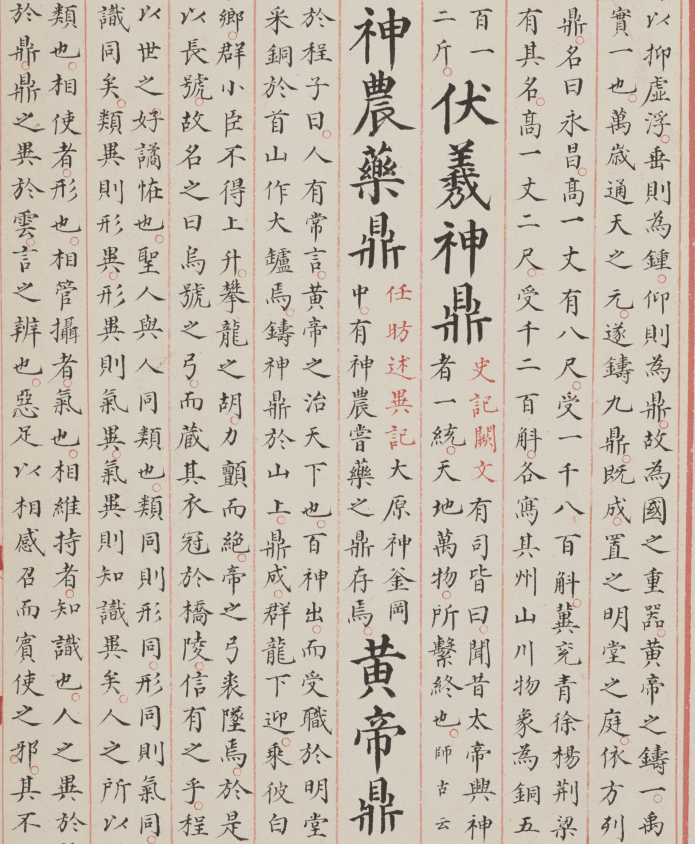 以抑虛浮垂則為鍾仰則為鼎故為國之重器黃帝之鑄一禹
實一也萬歲通天之元遂鑄九鼎既成置之明堂之庭依方列
鼎名曰永昌髙一丈有八尺受一千八百斛冀兖青徐楊荆梁
有其名髙一丈二尺受千二百斛各寫其州山川物象為銅五
百一
二斤
伏羲神鼎
史記闕文有司皆曰聞昔太帝興神
者一統天地萬物所繫終也師古云
神農藥鼎
任昉述異記大原神釜岡
中有神農嘗藥之鼎存焉
黃帝鼎
於程子曰人有常言黃帝之治天下也百神出而受職於明堂
采銅於首山作大罏焉鑄神鼎於山上鼎成群龍下迎乘彼白
鄉群小臣不得上升攀龍之胡力顫而絕帝之弓裘墜焉於是
以長號故名之曰烏號之弓而藏其衣冠於橋陵信有之乎程
以世之好譎恠也聖人與人同類也類同則形同形同則氣同
識同矣類異則形異形異則氣異氣異則知識異矣人之所以
類也相使者形也相管攝者氣也相維持者知識也人之異於
於鼎鼎之異於雲言之辨也惡足以相感召而賓使之邪其不